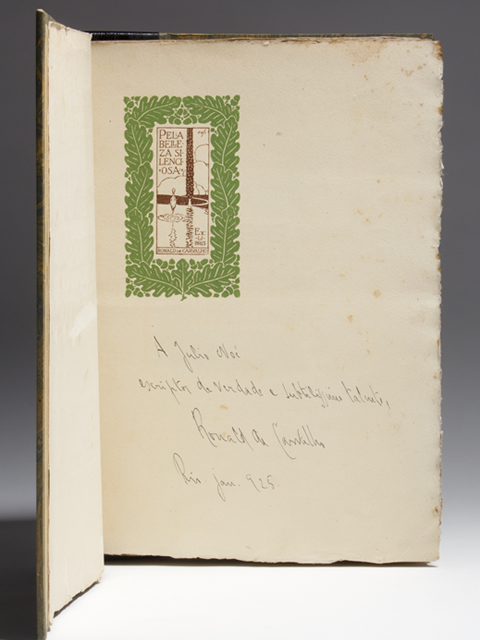 PELA
BELLE
ZA SI
LENCI
OSA
EX
LI
BRIS
RONALD DE CARVALHO
A Julio Noé
escriptor de verdade e subtilissimo talento,
Ronald de Carvalho
Rio jan. 925